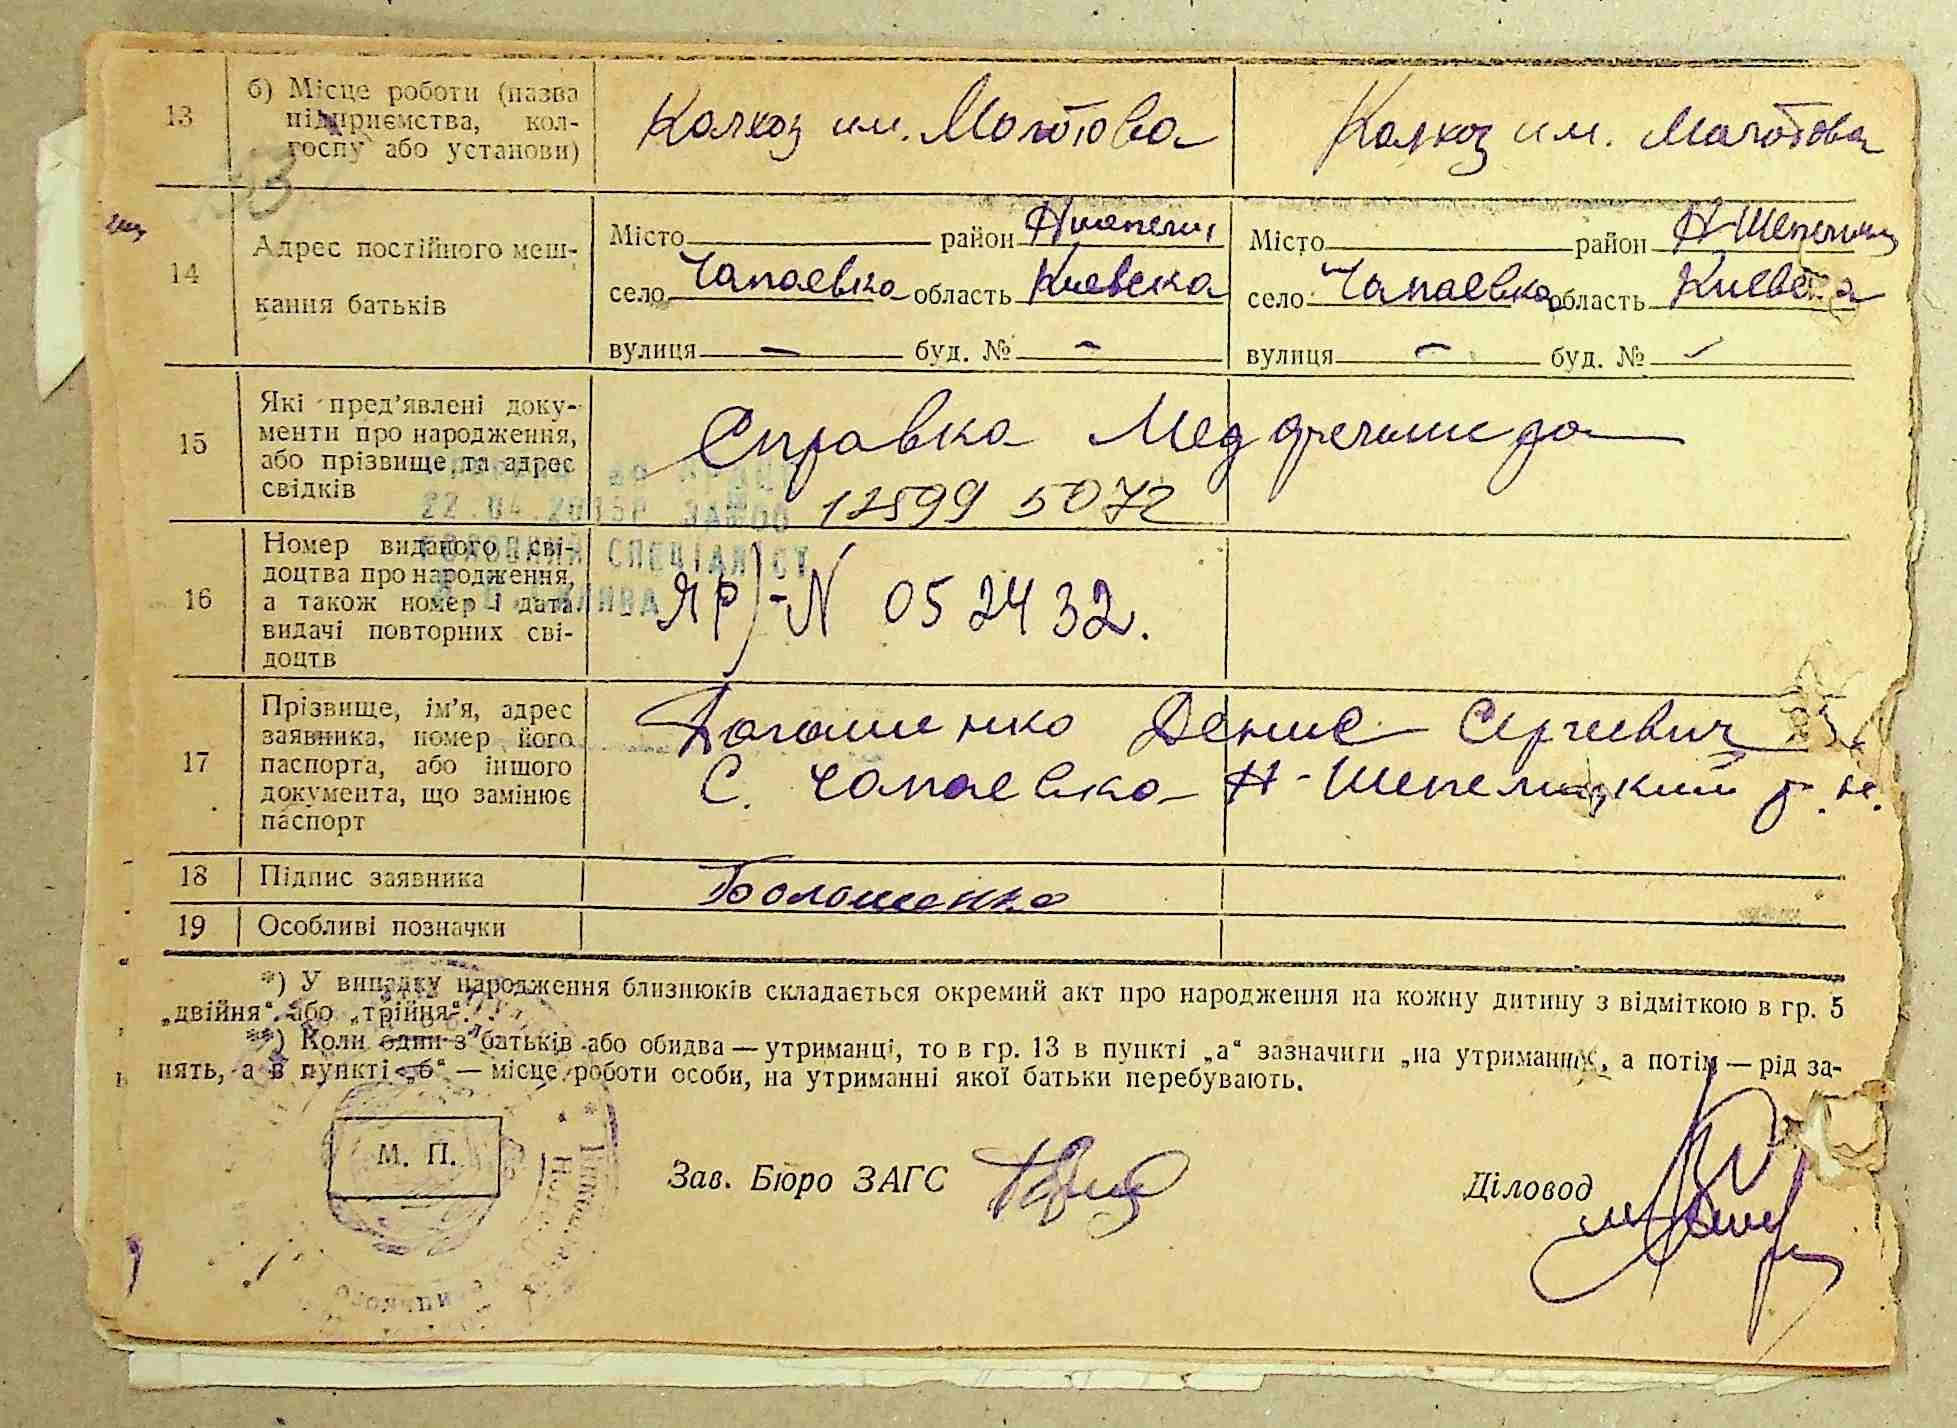 13
б) Місце роботи (назва
підприємства, кол-
госпу або установи)
Колхоз им. Молотова
Колхоз им. Молотова
14
Адрес постійного меш-
кання батьків
Місто район Н шепелич
село Чапаевка область Киевска
вулиця – буд. № –
Місто район Н-Шепелич
село Чапаевка область Киевска
вулиця – буд. № –
15
Які пред'явлені доку-
менти про народження,
або прізвище та адрес
свідків
Справка Мед
12599 5072
22.04.2015Р
СПЕЦІАЛІСТ
16
Номер виданого сві-
доцтва про народження,
а також номер і дата
видачі повторних сві-
доцтв
ЯР)-N 052432.
17
Прізвище, ім'я, адрес
заявника, номер його
паспорта, або іншого
документа, що замінює
паспорт
Денис Сергиевич
С. Чапаевка Н-Шепелицкий р.н.
18
Підпис заявника
19
Особливі позначки
*) У випадку народження близнюків складається окремий акт про народження на кожну дитину з відміткою в гр. 5
„двійня“ або „трійня“.
**) Коли один з батьків або обидва — утриманці, то в гр. 13 в пункті „а“ зазначити „на утриманні“, а потім — рід за-
нять, а в пункті „б“ — місце роботи особи, на утриманні якої батьки перебувають.
М. П.
Зав. Бюро ЗАГС
Діловод